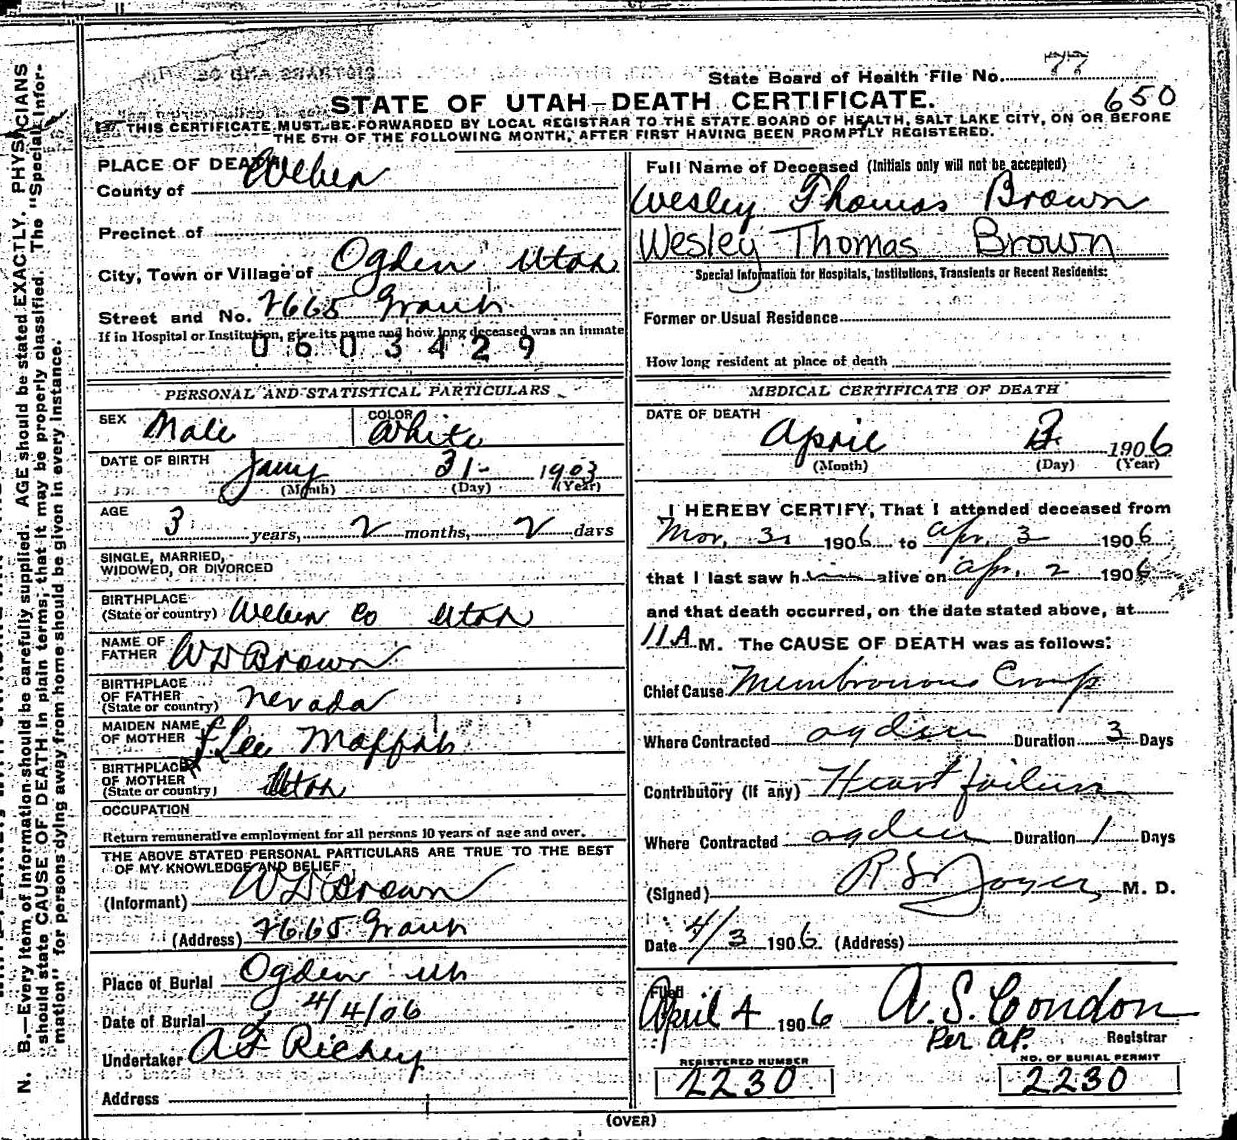 State Board of Health File No. 77
650
STATE OF UTAH—DEATH CERTIFICATE.
THIS CERTIFICATE MUST BE FORWARDED BY LOCAL REGISTRAR TO THE STATE BOARD OF HEALTH, SALT LAKE CITY, ON OR BEFORE
THE 5TH OF THE FOLLOWING MONTH, AFTER FIRST HAVING BEEN PROMPTLY REGISTERED.
PLACE OF DEATH
County of Weber
Precinct of
City, Town or Village of Ogden Utah
Street and No. 2665 Grant
If in Hospital or Institution, give its name and how long deceased was an inmate
0603429
PERSONAL AND STATISTICAL PARTICULARS
SEX Male COLOR White
DATE OF BIRTH Jany 31- 1903
(Month) (Day) (Year)
AGE 3 years, 2 months, 2 days
SINGLE, MARRIED,
WIDOWED, OR DIVORCED
BIRTHPLACE
(State or country) Weber Co Utah
NAME OF
FATHER W D Brown
BIRTHPLACE
OF FATHER
(State or country) Nevada
MAIDEN NAME
OF MOTHER Lee Moffat
BIRTHPLACE
OF MOTHER
(State or country) Utah
OCCUPATION
Return remunerative employment for all persons 10 years of age and over.
THE ABOVE STATED PERSONAL PARTICULARS ARE TRUE TO THE BEST
OF MY KNOWLEDGE AND BELIEF
(Informant) W D Brown
(Address) 2665 Grant
Place of Burial Ogden Ut
Date of Burial 4/4/06
Undertaker Richey
Address
Full Name of Deceased (Initials only will not be accepted)
Wesley Thomas Brown
Wesley Thomas Brown
Special Information for Hospitals, Institutions, Transients or Recent Residents:
Former or Usual Residence
How long resident at place of death
MEDICAL CERTIFICATE OF DEATH
DATE OF DEATH April 3 1906
(Month) (Day) (Year)
I HEREBY CERTIFY, That I attended deceased from
Mar, 31 1906 to Apr, 3 1906
that I last saw him alive on Apr, 2 1906
and that death occurred, on the date stated above, at
11 A M. The CAUSE OF DEATH was as follows:
Chief Cause Membranous Croup
Where Contracted Ogden Duration 3 Days
Contributory (If any) Heart failure
Where Contracted Ogden Duration 1 Days
(Signed) R S Joyce, M. D.
Date 4/3 1906 (Address)
Filed
April 4 1906 A. S. Condon
Per A.P. Registrar
REGISTERED NUMBER
2230
NO. OF BURIAL PERMIT
2230
(OVER)
N. B.—Every item of information should be carefully supplied. AGE should be stated EXACTLY. PHYSICIANS
should state CAUSE OF DEATH in plain terms, that it may be properly classified. The "Special Infor-
mation" for persons dying away from home should be given in every instance.